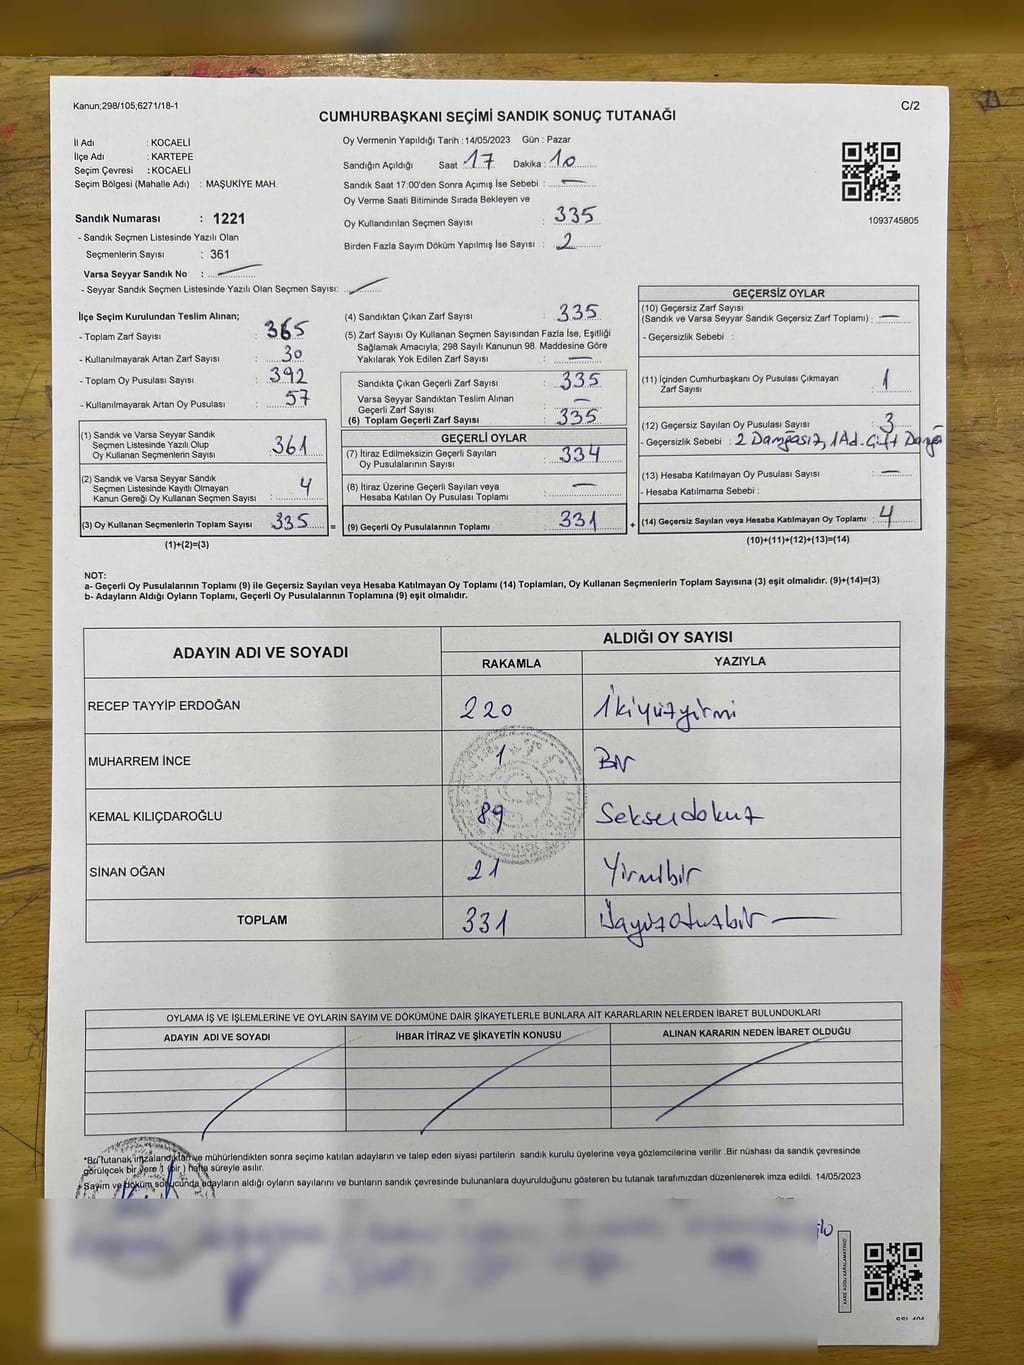 Kanun;298/105;6271/18-1
C/2
CUMHURBAŞKANI SEÇİMİ SANDIK SONUÇ TUTANAĞI
İl Adı : KOCAELİ
İlçe Adı : KARTEPE
Seçim Çevresi : KOCAELİ
Seçim Bölgesi (Mahalle Adı) : MAŞUKİYE MAH.
Sandık Numarası : 1221
- Sandık Seçmen Listesinde Yazılı Olan
Seçmenlerin Sayısı : 361
Varsa Seyyar Sandık No :
- Seyyar Sandık Seçmen Listesinde Yazılı Olan Seçmen Sayısı:
Oy Vermenin Yapıldığı Tarih : 14/05/2023 Gün : Pazar
Sandığın Açıldığı Saat 17 Dakika : 10
Sandık Saat 17:00'den Sonra Açımış İse Sebebi : —
Oy Verme Saati Bitiminde Sırada Bekleyen ve
Oy Kullandırılan Seçmen Sayısı : 335
Birden Fazla Sayım Döküm Yapılmış İse Sayısı : 2
1093745805
İlçe Seçim Kurulundan Teslim Alınan;
- Toplam Zarf Sayısı : 365
- Kullanılmayarak Artan Zarf Sayısı : 30
- Toplam Oy Pusulası Sayısı : 392
- Kullanılmayarak Artan Oy Pusulası : 57
(1) Sandık ve Varsa Seyyar Sandık
Seçmen Listesinde Yazılı Olup
Oy Kullanan Seçmenlerin Sayısı : 361
(2) Sandık ve Varsa Seyyar Sandık
Seçmen Listesinde Kayıtlı Olmayan
Kanun Gereği Oy Kullanan Seçmen Sayısı : 4
(3) Oy Kullanan Seçmenlerin Toplam Sayısı : 335 =
(1)+(2)=(3)
(4) Sandıktan Çıkan Zarf Sayısı : 335
(5) Zarf Sayısı Oy Kullanan Seçmen Sayısından Fazla İse, Eşitliği
Sağlamak Amacıyla, 298 Sayılı Kanunun 98. Maddesine Göre
Yakılarak Yok Edilen Zarf Sayısı : —
Sandıkta Çıkan Geçerli Zarf Sayısı : 335
Varsa Seyyar Sandıktan Teslim Alınan
Geçerli Zarf Sayısı : —
(6) Toplam Geçerli Zarf Sayısı : 335
GEÇERLİ OYLAR
(7) İtiraz Edilmeksizin Geçerli Sayılan
Oy Pusulalarının Sayısı : 334
(8) İtiraz Üzerine Geçerli Sayılan veya
Hesaba Katılan Oy Pusulası Toplamı : —
(9) Geçerli Oy Pusulalarının Toplamı : 331 +
GEÇERSİZ OYLAR
(10) Geçersiz Zarf Sayısı
(Sandık ve Varsa Seyyar Sandık Geçersiz Zarf Toplamı) : —
- Geçersizlik Sebebi :
(11) İçinden Cumhurbaşkanı Oy Pusulası Çıkmayan
Zarf Sayısı : 1
(12) Geçersiz Sayılan Oy Pusulası Sayısı : 3
- Geçersizlik Sebebi : 2 Damgasız, 1 Ad. Çift Damga
(13) Hesaba Katılmayan Oy Pusulası Sayısı : —
- Hesaba Katılmama Sebebi :
(14) Geçersiz Sayılan veya Hesaba Katılmayan Oy Toplamı : 4
(10)+(11)+(12)+(13)=(14)
NOT:
a- Geçerli Oy Pusulalarının Toplamı (9) ile Geçersiz Sayılan veya Hesaba Katılmayan Oy Toplamı (14) Toplamları, Oy Kullanan Seçmenlerin Toplam Sayısına (3) eşit olmalıdır. (9)+(14)=(3)
b- Adayların Aldığı Oyların Toplamı, Geçerli Oy Pusulalarının Toplamına (9) eşit olmalıdır.
ADAYIN ADI VE SOYADI
ALDIĞI OY SAYISI
RAKAMLA YAZIYLA
RECEP TAYYİP ERDOĞAN 220 İkiyüzyirmi
MUHARREM İNCE 1 Bir
KEMAL KILIÇDAROĞLU 89 Seksendokuz
SİNAN OĞAN 21 Yirmibir
TOPLAM 331 Üçyüzotuzbir —
OYLAMA İŞ VE İŞLEMLERİNE VE OYLARIN SAYIM VE DÖKÜMÜNE DAİR ŞİKAYETLERLE BUNLARA AİT KARARLARIN NELERDEN İBARET BULUNDUKLARI
ADAYIN ADI VE SOYADI İHBAR İTİRAZ VE ŞİKAYETİN KONUSU ALINAN KARARIN NEDEN İBARET OLDUĞU
*Bu tutanak imzalandıktan ve mühürlendikten sonra seçime katılan adayların ve talep eden siyasi partilerin sandık kurulu üyelerine veya gözlemcilerine verilir. Bir nüshası da sandık çevresinde
görülecek bir yere 1 (bir) hafta süreyle asılır.
Sayım ve döküm sonucunda adayların aldığı oyların sayılarını ve bunların sandık çevresinde bulunanlara duyurulduğunu gösteren bu tutanak tarafımızdan düzenlenerek imza edildi. 14/05/2023
KARE KODU KARALAMAYINIZ!